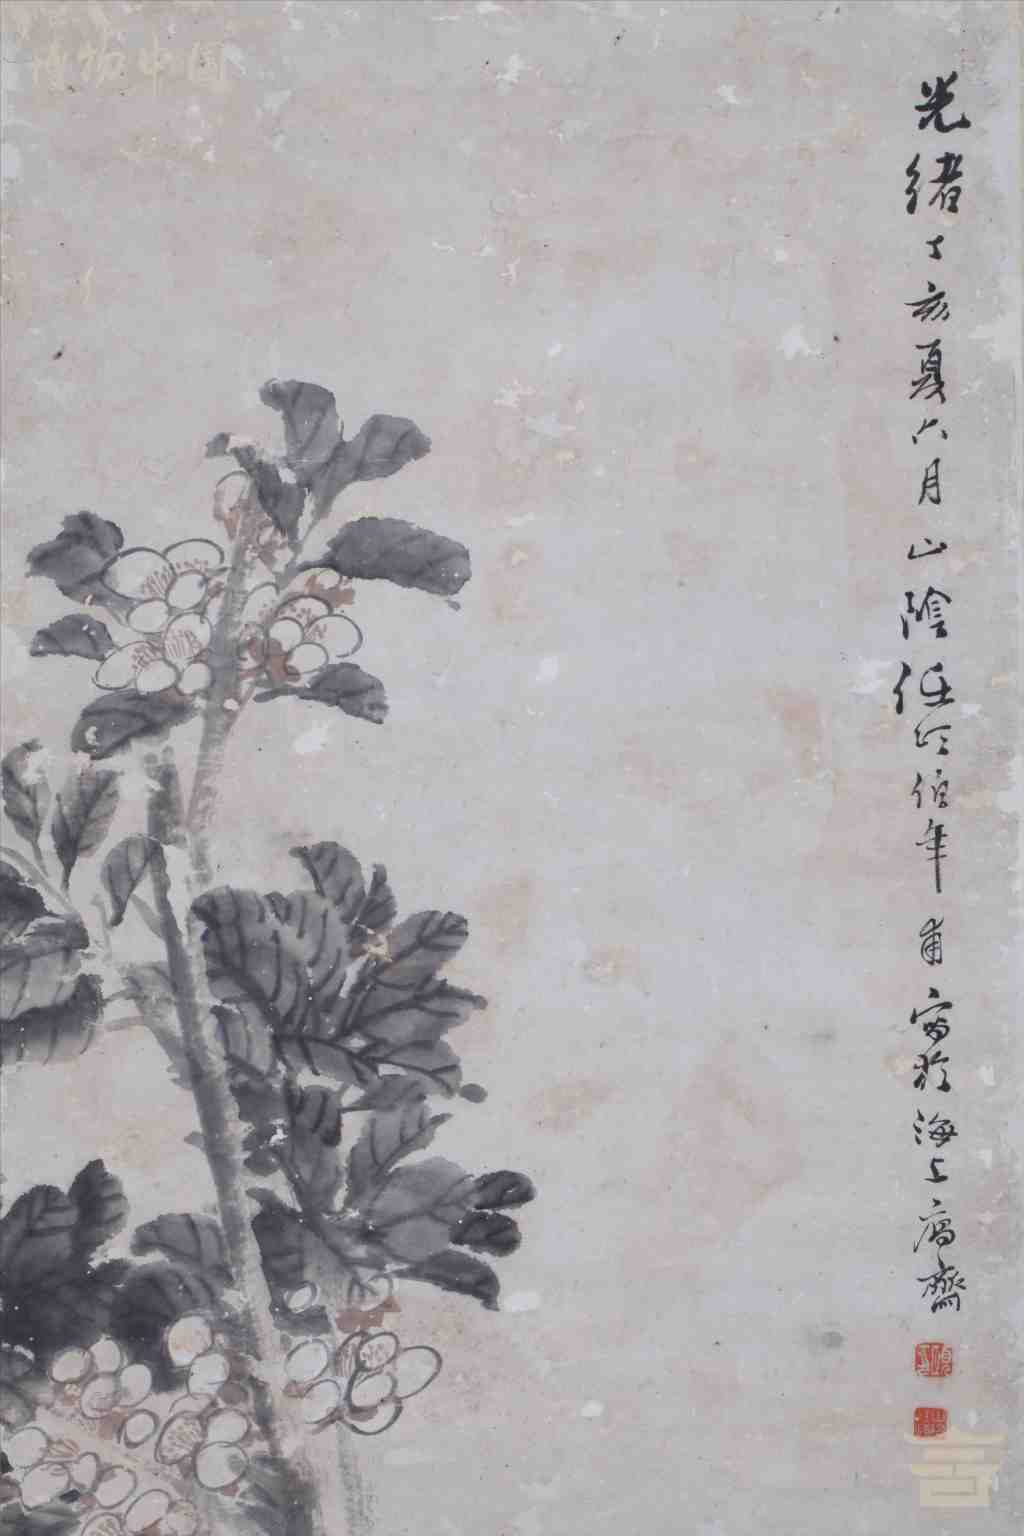 光緒丁亥夏六月山陰任頤伯年甫寫於海上寓齋
博物中國